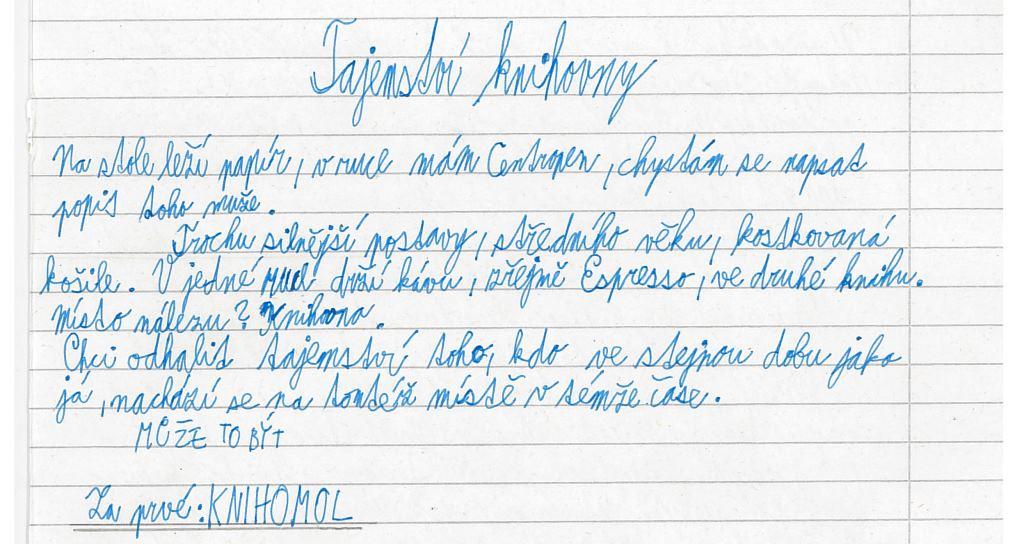 Tajemství knihovny
Na stole leží papír, v ruce mám Centropen, chystám se napsat
popis toho muže.
Trochu silnější postavy, středního věku, kostkovaná
košile. V jedné ruce drží kávu, zřejmě Espresso, ve druhé knihu.
Místo nálezu? Knihovna.
Chci odhalit tajemství toho, kdo ve stejnou dobu jako
já, nachází se na tomtéž místě v témže čase.
MŮŽE TO BÝT
Za prvé: KNIHOMOL